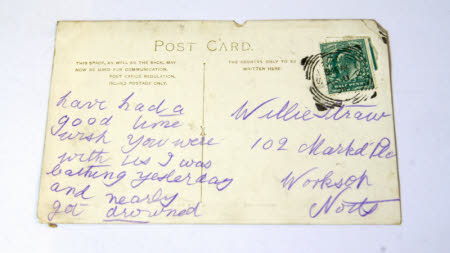 POST CARD.
THIS SPACE, AS WELL AS THE BACK, MAY
NOW BE USED FOR COMMUNICATION.
POST OFFICE REGULATION.
INLAND POSTAGE ONLY.
THE ADDRESS ONLY TO BE
WRITTEN HERE.
HALF PENNY
have had a
good time
wish you were
with us I was
bathing yesterday
and nearly
got drowned
Willie Straw
102 Market Pla
Worksop
Notts